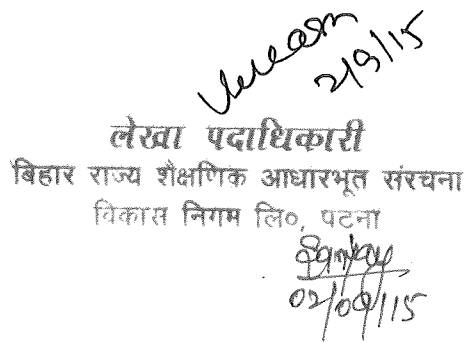 2/9/15
लेखा पदाधिकारी
बिहार राज्य शैक्षणिक आधारभूत संरचना
विकास निगम लि०, पटना
02/09/15